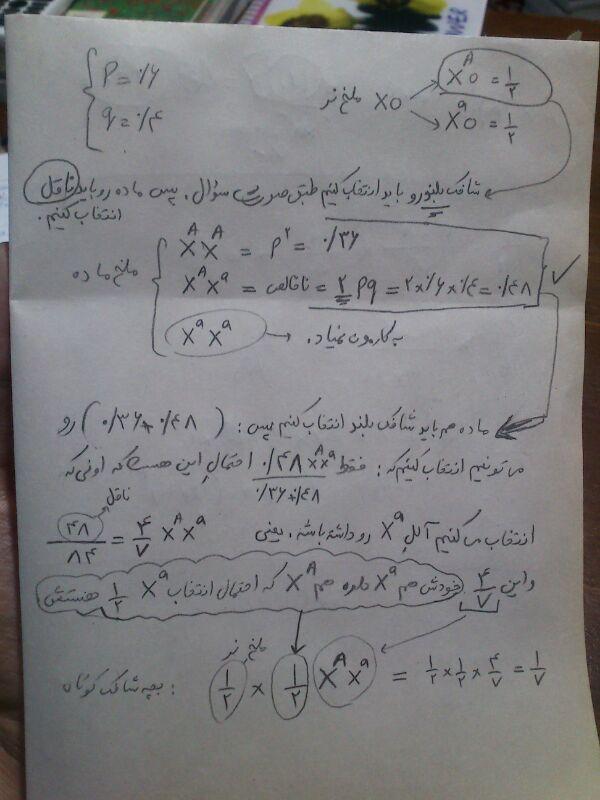 P = ۰/۶
q = ۰/۴
ملخ نر XO → X^A O = ۱/۲
→ X^a O = ۱/۲
شاخک بلند رو باید انتخاب کنیم طبق صورت سؤال. پس ماده رو باید ناقل
انتخاب کنیم.
X^A X^A = P^۲ = ۰/۳۶
ملخ ماده
X^A X^a = ناخالص = ۲Pq = ۲×۰/۶×۰/۴ = ۰/۴۸
X^a X^a → به کارمون نمیاد.
ماده هم باید شاخک بلند انتخاب کنیم پس: (۰/۳۶+۰/۴۸) رو
می تونیم انتخاب کنیم که: فقط ۰/۴۸ X^A X^a / ۰/۳۶+۰/۴۸ احتمال این هست که اونی که
ناقل
انتخاب می کنیم آلل X^a رو داشته باشه. یعنی ۴۸/۸۴ = ۴/۷ X^A X^a
و این ۴/۷ خودش هم X^a داره هم X^A که احتمال انتخاب X^a ۱/۲ هستش
ملخ نر
بچه شاخک کوتاه: ۱/۲ × ۱/۲ X^A X^a = ۱/۲ × ۱/۲ × ۴/۷ = ۱/۷